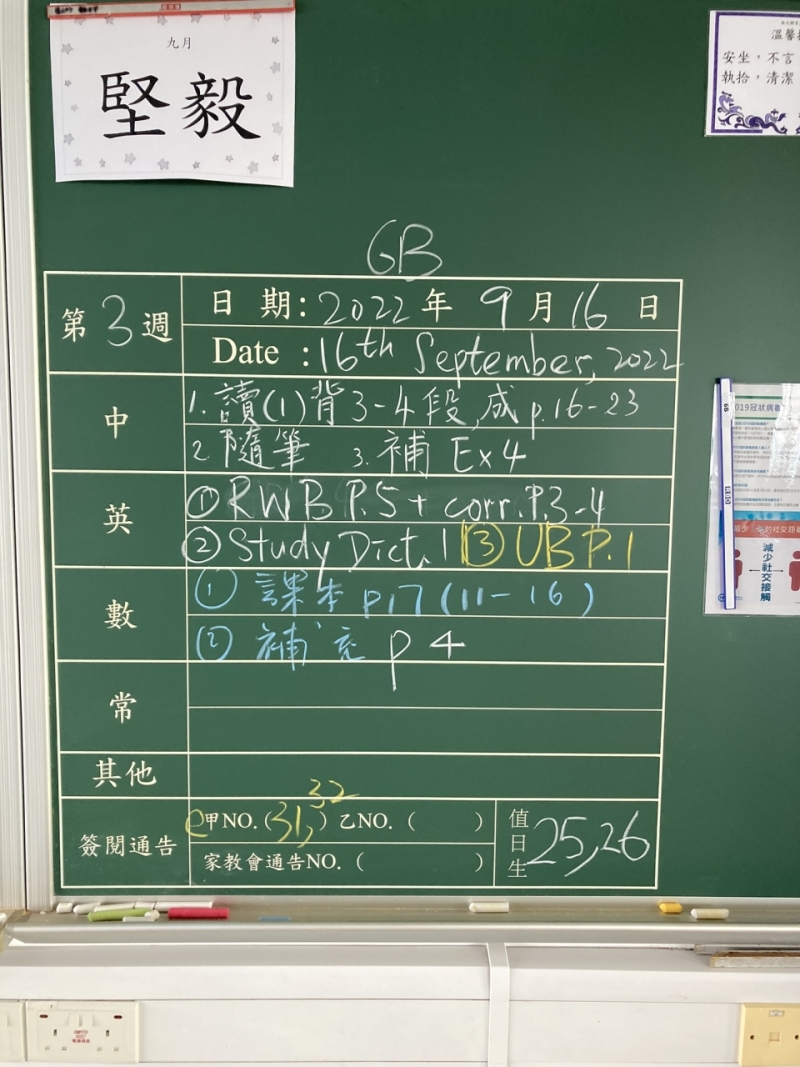 九月
堅毅
溫馨
安坐，不言
執拾，清潔
6B
第3週
日期：2022年9月16日
Date : 16th September, 2022
中
1. 讀(1)背3-4段,成p.16-23
2. 隨筆 3. 補 Ex4
英
① RWB P.5 + corr. P.3-4
② Study Dict. 1 ③ UB P.1
數
① 課本 p17 (11-16)
② 補充 p4
常
其他
簽閱通告
e甲NO. (31, 32) 乙NO. ( )
家教會通告NO. ( )
值日生
25,26
2019冠狀病毒
的社交距
減少社交接觸